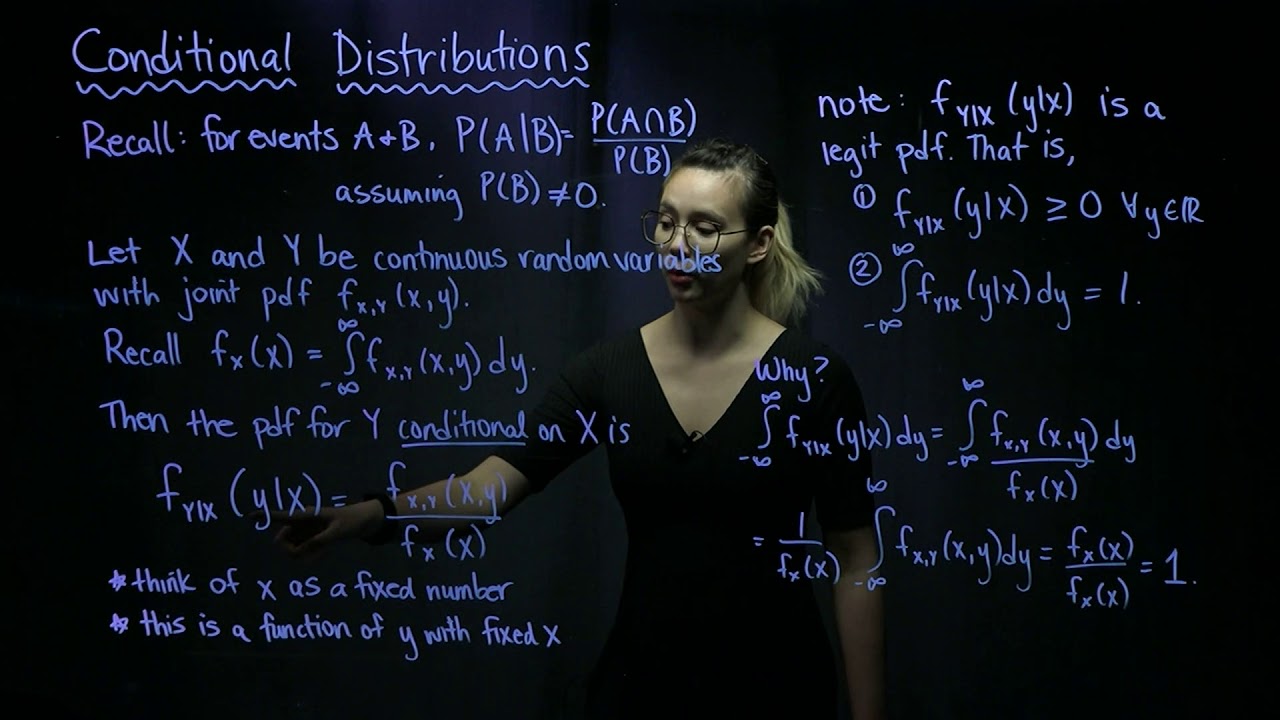 Conditional Distributions
Recall: for events A & B, P(A|B) = P(A∩B) / P(B)
assuming P(B) ≠ 0.
Let X and Y be continuous random variables
with joint pdf f_{X,Y}(x,y).
Recall f_X(x) = ∫_{-∞}^{∞} f_{X,Y}(x,y) dy.
Then the pdf for Y conditional on X is
f_{Y|X}(y|x) = f_{X,Y}(x,y) / f_X(x)
* think of x as a fixed number
* this is a function of y with fixed x
note: f_{Y|X}(y|x) is a
legit pdf. That is,
① f_{Y|X}(y|x) ≥ 0 ∀ y ∈ ℝ
② ∫_{-∞}^{∞} f_{Y|X}(y|x) dy = 1.
Why?
∫_{-∞}^{∞} f_{Y|X}(y|x) dy = ∫_{-∞}^{∞} f_{X,Y}(x,y) / f_X(x) dy
= 1 / f_X(x) ∫_{-∞}^{∞} f_{X,Y}(x,y) dy = f_X(x) / f_X(x) = 1.